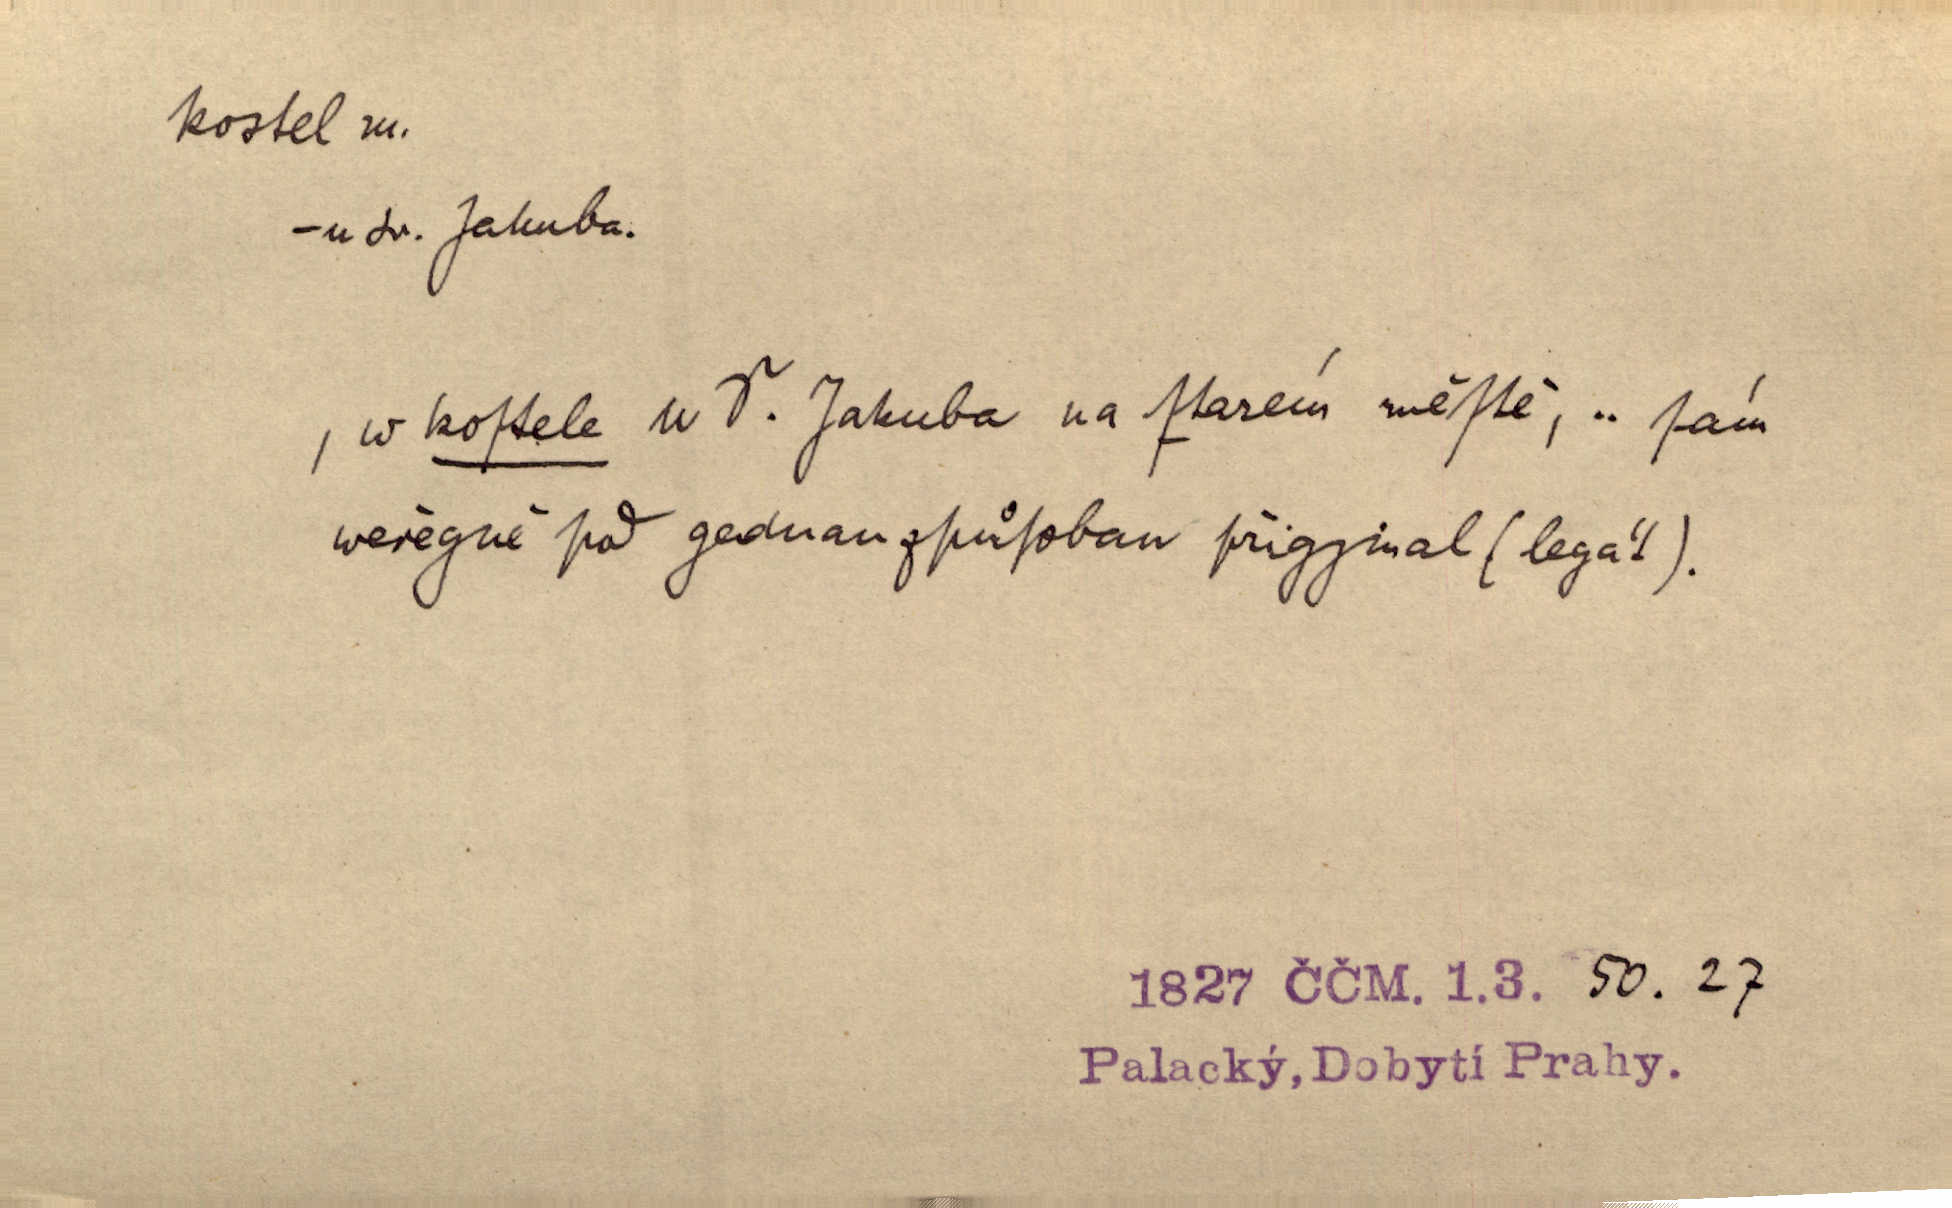 kostel m.
– u sv. Jakuba.
, w koſtele u S. Jakuba na ſtarém měſtě, .. ſám
weřegně pod gednau způſobau přigjmal (legát).
1827 ČČM. 1.3. 50. 27
Palacký, Dobytí Prahy.